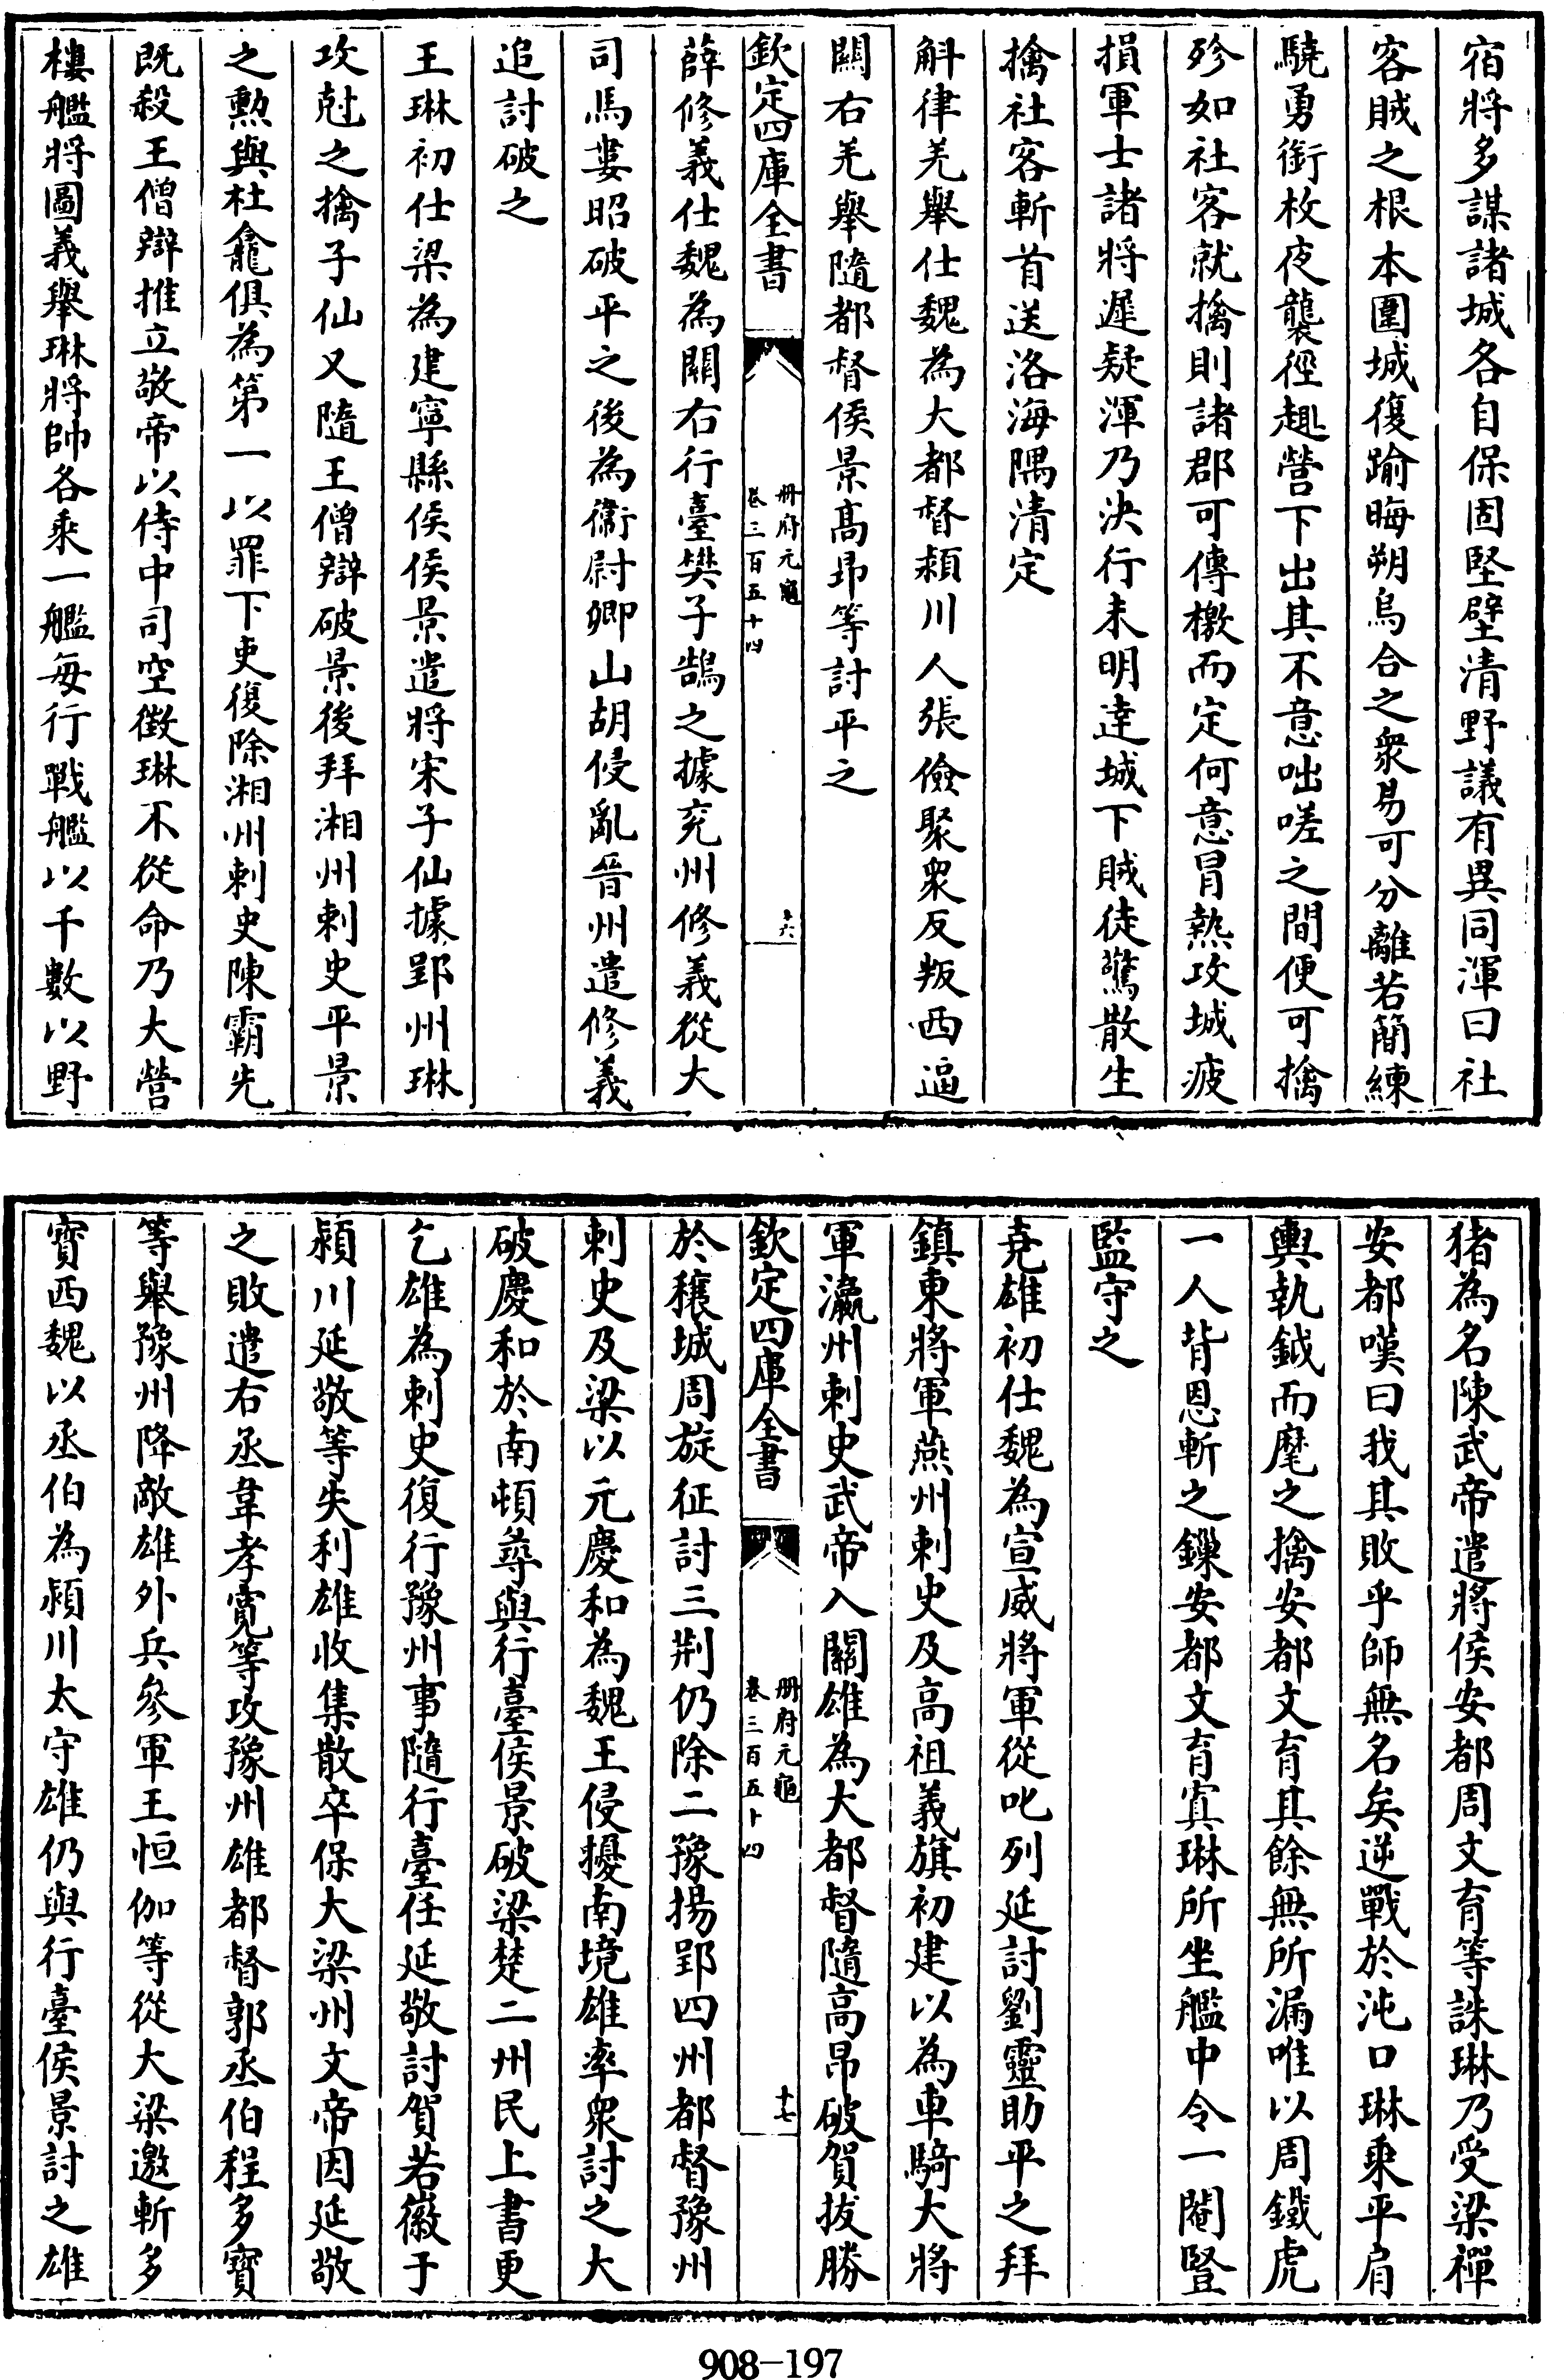 宿將多謀諸城各自保固堅壁清野議有異同渾曰社
客賊之根本圍城復踰晦朔烏合之衆易可分離若簡練
驍勇銜枚夜襲徑趣營下出其不意咄嗟之間便可擒
殄如社客就擒則諸郡可傳檄而定何意冒熱攻城疲
損軍士諸將遲疑渾乃決行未明達城下賊徒驚散生
擒社客斬首送洛海隅清定
斛律羌舉仕魏為大都督潁川人張儉聚衆反叛西逼
關右羌舉隨都督侯景高昂等討平之
欽定四庫全書
冊府元龜
卷三百五十四
十六
薛修義仕魏為關右行臺樊子鵠之據兖州修義從大
司馬婁昭破平之後為衞尉卿山胡侵亂晉州遣修義
追討破之
王琳初仕梁為建寧縣侯侯景遣將宋子仙據郢州琳
攻尅之擒子仙又隨王僧辯破景後拜湘州刺史平景
之勲與杜龕俱為第一以罪下吏復除湘州刺史陳霸先
既殺王僧辯推立敬帝以侍中司空徵琳不從命乃大營
樓艦將圖義舉琳將帥各乘一艦每行戰艦以千數以野
猪為名陳武帝遣將侯安都周文育等誅琳乃受梁禪
安都嘆曰我其敗乎師無名矣逆戰於沌口琳乘平肩
輿執鉞而麾之擒安都文育其餘無所漏唯以周鐵虎
一人背恩斬之鏁安都文育寘琳所坐艦中令一閹豎
監守之
堯雄初仕魏為宣威將軍從叱列延討劉靈助平之拜
鎮東將軍燕州刺史及高祖義旗初建以為車騎大將
軍瀛州刺史武帝入關雄為大都督隨高昂破賀拔勝
欽定四庫全書
冊府元龜
卷三百五十四
十七
於穰城周旋征討三荆仍除二豫揚郢四州都督豫州
刺史及梁以元慶和為魏王侵擾南境雄率衆討之大
破慶和於南頓尋與行臺侯景破梁楚二州民上書更
乞雄為刺史復行豫州事隨行臺任延敬討賀若徽于
潁川延敬等失利雄收集散卒保大梁州文帝因延敬
之敗遣右丞韋孝寛等攻豫州雄都督郭丞伯程多寶
等舉豫州降敵雄外兵參軍王恒伽等從大梁邀斬多
寶西魏以丞伯為潁川太守雄仍與行臺侯景討之雄
908-197